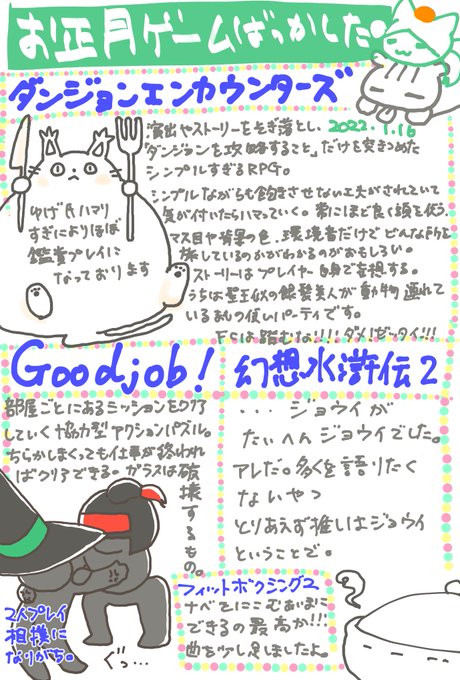 お正月ゲームばっかした。
ダンジョンエンカウンターズ
2022.1.16
演出やストーリーをそぎ落とし、
「ダンジョンを攻略すること」だけを突きつめた
シンプルすぎるRPG。
シンプルながらも飽きさせない工夫がされていて
気が付いたらハマっていく。常にほど良く頭を使う。
マス目や背景の色、環境音だけでどんな所を
旅しているのかがわかるのがおもしろい。
ストーリーはプレイヤー自身で妄想する。
うちは聖王似の銀髪美人が動物連れて
いるあしつ使いパーティです。
FCは踏むな!!!ダメ!ゼッタイ!!!
ゆげ氏ハマり
すぎによりほぼ
鑑賞プレイに
なっております
Goodjob!
部屋ごとにあるミッションをクリア
していく協力型アクションパズル。
ちらかしまくっても仕事が終われ
ばクリアできる。ガラスは破壊するもの。
2人プレイ
相撲に
なりがち。
ぐっ…
幻想水滸伝2
・・・ジョウイが
たいへんジョウイでした。
アレだ。多くを語りたく
ないやつ
とりあえず推しはジョウイ
ということで。
フィットボクシング2
ナベてにこむあいまに
できるの最高か!!!
曲を少し足しましたよ。